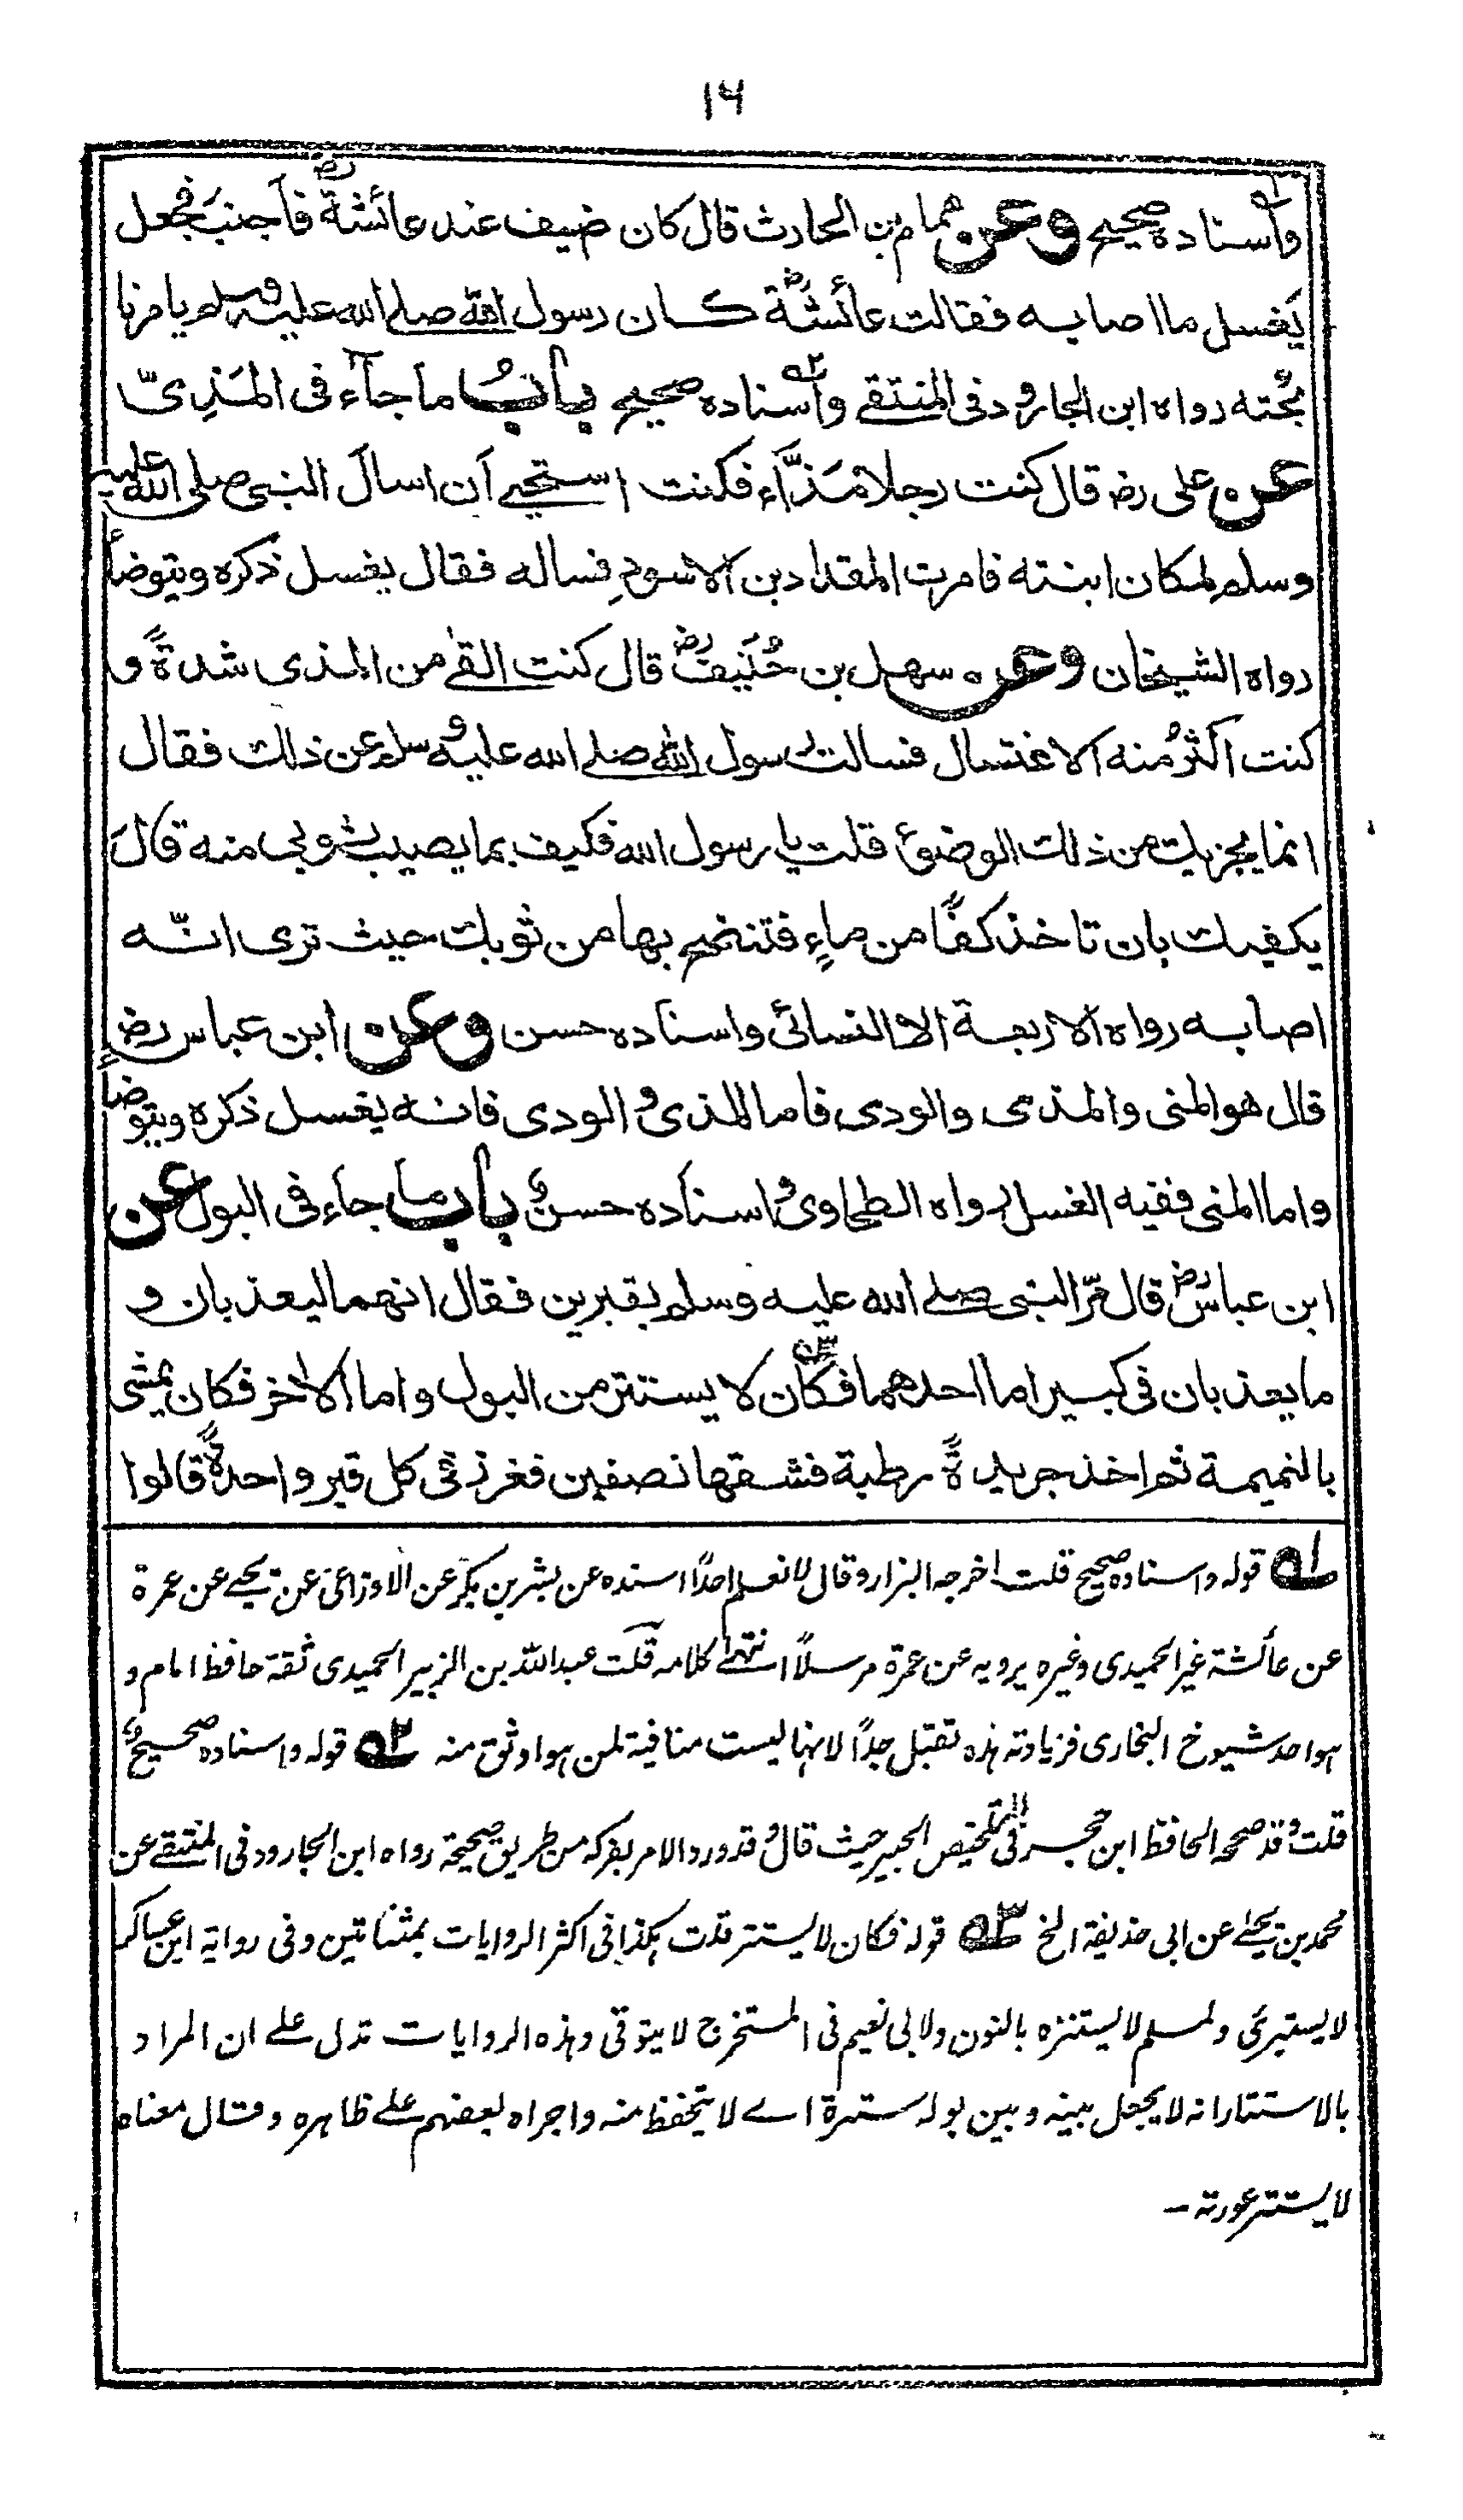 ۱۶
واسناده صحیح وعن همام بن الحارث قال کان ضیف عند عائشة رض فاجنب فجعل
یغسل ما اصابه فقالت عائشة رض کان رسول الله صلی الله علیه وسلم یامرنا
بحته رواه ابن الجارود فی المنتقے واسناده صحیح بابُ ما جآء فی المَذِیّ
عن علی رض قال کنت رجلا مَذّآء فکنت استحیے اَن اسال النبی صلی الله علیه
وسلم لمکان ابنته فامرت المقداد بن الاسودِ فساله فقال یغسل ذکره ویتوضأ
رواه الشیخان وعن سهل بن حُنَیف رض قال کنت القٰے من المذی شدةً و
کنت اکثرُ منه الاغتسال فسالت رسول الله صلے الله علیه وسلم عن ذلک فقال
انما یجزیک من ذلک الوضوء قلت یا رسول الله فکیف بما یصیب ثوبی منه قالَ
یکفیک بان تاخذ کفًا من ماءٍ فتنضح بها من ثوبک حیث تری انّه
اصابه رواه الاربعة الا النسائی واسناده حسن وعن ابن عباس رض
قال هو المنی والمذی والودی فاما المذی والودی فانه یغسل ذکره ویتوضأ
واما المنی ففیه الغسل رواه الطحاوی واسناده حسنٌ باب ما جاء فی البول عن
ابن عباس رض قال مرّ النبی صلے الله علیه وسلم بقبرین فقال انهما لیعذبان و
ما یعذبان فی کبیر اما احدهما فکان ۳ه لا یستتر من البول واما الاخر فکان یمشی
بالنمیمة ثم اخذ جریدةً رطبة فشقها نصفین فغرز فی کل قبر واحدةً قالوا
۱ه قوله واسناده صحیح قلت اخرجه البزار وقال لا نعلم احدًا اسنده عن بشر بن بکر عن الاوزاعی عن یحیے عن عمرة
عن عائشة غیر الحمیدی وغیره یرویه عن عمرة مرسلًا انتهٰے کلامه قلت عبد الله بن الزبیر الحمیدی ثقة حافظ امام و
هو احد شیوخ البخاری فزیادته هذه تقبل جدًا لانها لیست منافیة لمن هو اوثق منه ۲ه قوله واسناده صحیحٌ
قلت وقد صححه الحافظ ابن حجر فی التلخیص الحبیر حیث قال وقد ورد الامر بفرکه من طریق صحیحة رواه ابن الجارود فی المنتقے عن
محمد بن یحیٰے عن ابی حذیفة الخ ۳ه قوله فکان لا یستتر قلت هکذا فی اکثر الروایات بمثناتین وفی روایة ابن عساکر
لا یستبرئ ولمسلم لا یستنزه بالنون ولابی نعیم فی المستخرج لا یتوقی وهذه الروایات تدل علے ان المراد
بالاستتار انه لا یجعل بینه وبین بوله سترة اے لا یتحفظ منه واجراه بعضهم علے ظاهره وقال معناه
لا یستتر عورته ـ